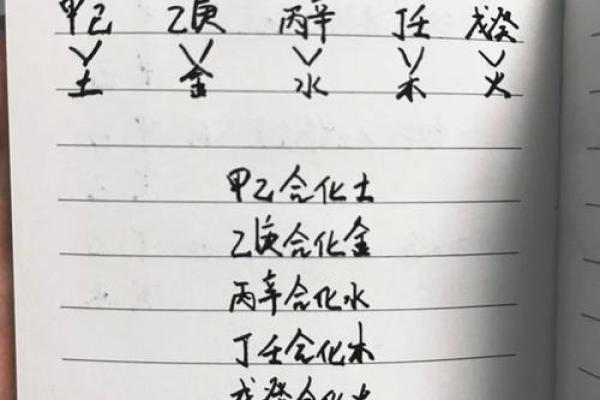 甲己 乙庚 丙辛 丁壬 戊癸
土 金 水 木 火
甲己合化土
乙庚合化金
丙辛合化水
丁壬合化木
戊癸合化火